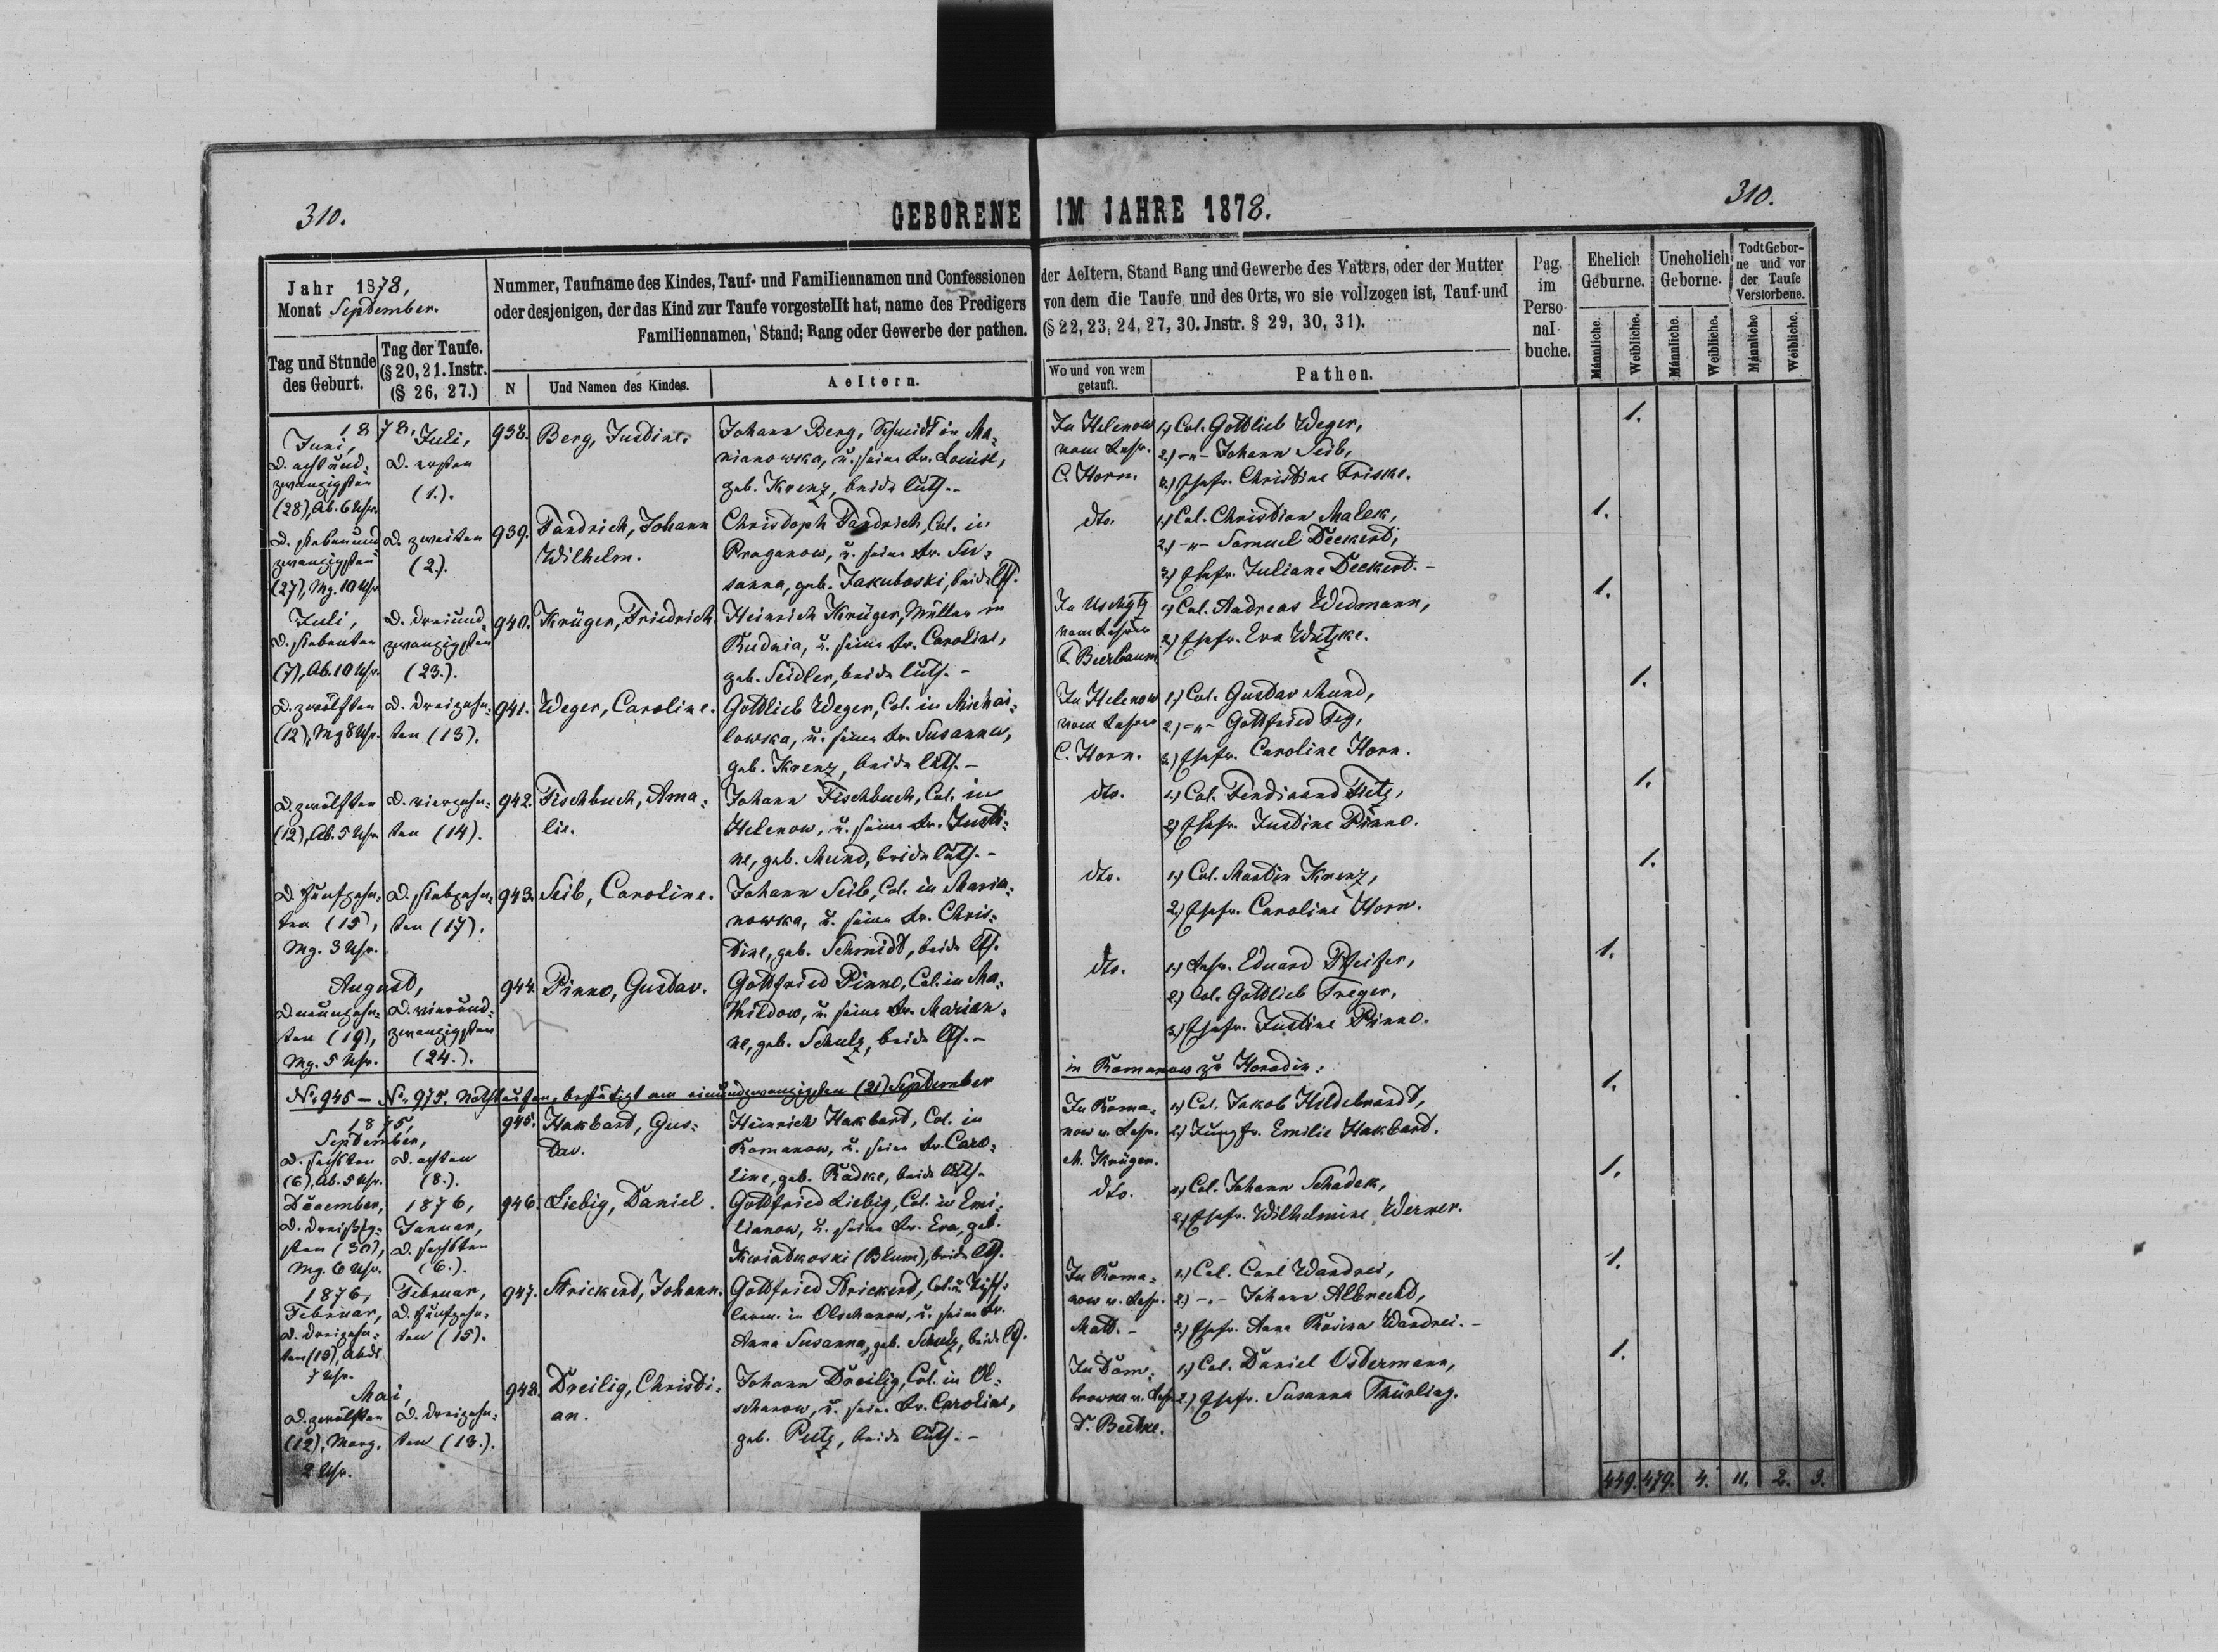 310.
GEBORENE IM JAHRE 1878.
310.
Jahr 1878,
Monat September.
Nummer, Taufname des Kindes, Tauf- und Familiennamen und Confessionen
oder desjenigen, der das Kind zur Taufe vorgestellt hat, name des Predigers
Familiennamen, Stand; Rang oder Gewerbe der pathen.
der Aeltern, Stand Rang und Gewerbe des Vaters, oder der Mutter
von dem die Taufe und des Orts, wo sie vollzogen ist, Tauf-und
(§ 22, 23, 24, 27, 30. Jnstr. § 29, 30, 31).
Pag.
im
Perso-
nal-
buche.
Ehelich
Geburne.
Unehelich
Geborne.
Todt Gebor-
ne und vor
der Taufe
Verstorbene.
Tag und Stunde
des Geburt.
Tag der Taufe.
(§ 20, 21. Instr.
(§ 26, 27.)
N
Und Namen des Kindes.
Aeltern.
Wo und von wem
getauft.
Pathen.
Männliche.
Weibliche.
Männliche.
Weibliche.
Männliche
Weibliche.
1878.
Juni,
D. acht und-
zwanzigsten
(28), Ab. 6 Uhr
Juli,
D. ersten
(1.).
938.
Berg, Justine.
Johann Berg, Schmidt in Ma-
rianowka, u. seine Fr. Louise,
geb. Krenz, beide luth.-
In Helenow
vom Lehr.
C. Horn.
1.) Col. Gottlieb Weger,
2.) -"- Johann Seib,
3.) Ehefr. Christine Friske.
1.
D. siebenund
zwanzigsten
(27), Mg. 10 Uhr
D. zweiten
(2.).
939.
Fandrich, Johann
Wilhelm.
Christoph Fandrich, Col. in
Praganow, u. seine Fr. Su-
sanna, geb. Jakuboski, beide lth.
dto.
1.) Col. Christian Malek,
2.) -"- Samuel Deckert,
3.) Ehefr. Juliane Deckert.-
1.
Juli,
D. siebenten
(7), Ab. 10 Uhr.
D. dreiund-
zwanzigsten
(23.).
940.
Krüger, Friedrich.
Heinrich Krüger, Müller in
Rudnia, u. seine Fr. Caroline,
geb. Seidler, beide luth.-
vom Lehrer
F. Beerbaum
1.) Col. Andreas Widmann,
2.) Ehefr. Eva Wutzke.
1.
D. zwölften
(12), Mg 8 Uhr.
D. dreizehn-
ten (13).
941.
Weger, Caroline.
Gottlieb Weger, Col. in Michai-
lowka, u. seine Fr. Susanna,
geb. Krenz, beide luth.-
In Helenow
vom Lehrer
C. Horn.
1.) Col. Gustav Mund,
2.) -"- Gottfried Fey,
3.) Ehefr. Caroline Horn.
1.
D. zwölften
(12), Ab. 5 Uhr
D. vierzehn-
ten (14).
942.
Fischbuch, Ama-
lie.
Johann Fischbuch, Col. in
Helenow, u. seine Fr. Justi-
ne, geb. Mund, beide luth.-
dto.
1.) Col. Ferdinand Fietz,
2.) Ehefr. Justine Pinno.
1.
D. fünfzehn-
ten (15),
Mg. 3 Uhr.
D. siebzehn-
ten (17).
943.
Seib, Caroline.
Johann Seib, Col. in Maria-
nowka, u. seine Fr. Chris-
tine, geb. Schmidt, beide lth.
dto.
1.) Col. Martin Krenz,
2.) Ehefr. Caroline Horn.
1.
August,
D. neunzehn-
ten (19),
Mg. 5 Uhr.
D. vierund-
zwanzigsten
(24.).
944.
Pinno, Gustav.
Gottfried Pinno, Col. in Ma-
thildow, u. seine Fr. Marian-
ne, geb. Schulz, beide lth.-
dto.
1.) Lehr. Eduard Pfeifer,
2.) Col. Gottlieb Treger,
3.) Ehefr. Justine Pinno.
1.
No. 945 - No. 975. Nothtaufen, bestätigt am einundzwanzigsten (21) September
in Romanow zu Horodin:
1875,
September,
D. sechsten
(6), Ab. 5 Uhr.
D. achten
(8.).
945.
Hakbart, Gus-
tav.
Heinrich Hakbart, Col. in
Romanow, u. seine Fr. Caro-
line, geb. Radke, beide luth.
In Roma-
now v. Lehr.
M. Krüger.
1.) Col. Jakob Hildebrandt,
2.) Jungfr. Emilie Hakbart.
1.
December,
D. dreißig-
sten (30),
Mg. 6 Uhr.
1876,
Januar,
D. sechsten
(6.).
946.
Liebig, Daniel.
Gottfried Liebig, Col. in Emi-
lianow, u. seine Fr. Eva, geb.
Kwiatkoski (Blum), beide lth.
dto.
1.) Col. Johann Schadek,
2.) Ehefr. Wilhelmine Werner.
1.
1876,
Februar,
D. dreizehn-
ten (13), Abds
7 Uhr.
Februar,
D. fünfzehn-
ten (15).
947.
Strickert, Johann.
Gottfried Strickert, Col. u. Tisch-
lerm. in Olschanow, u. seine Fr.
Anna Susanna, geb. Schulz, beide lth.
In Roma-
now v. Lehr.
Matt.-
1.) Col. Carl Wandrei,
2.) -"- Johann Albrecht,
3.) Ehefr. Anna Rosina Wandrei.-
1.
Mai,
D. zwölften
(12), Morg.
2 Uhr.
D. dreizehn-
ten (13.).
948.
Dreilig, Christi-
an.
Johann Dreilig, Col. in Ol-
schanow, u. seine Fr. Caroline,
geb. Putz, beide luth.-
In Dom-
browka v. Lehr.
D. Beutke.
1.) Col. Daniel Ostermann,
2.) Ehefr. Susanna Thürling.
1.
449. 479. 4. 11. 2. 3.